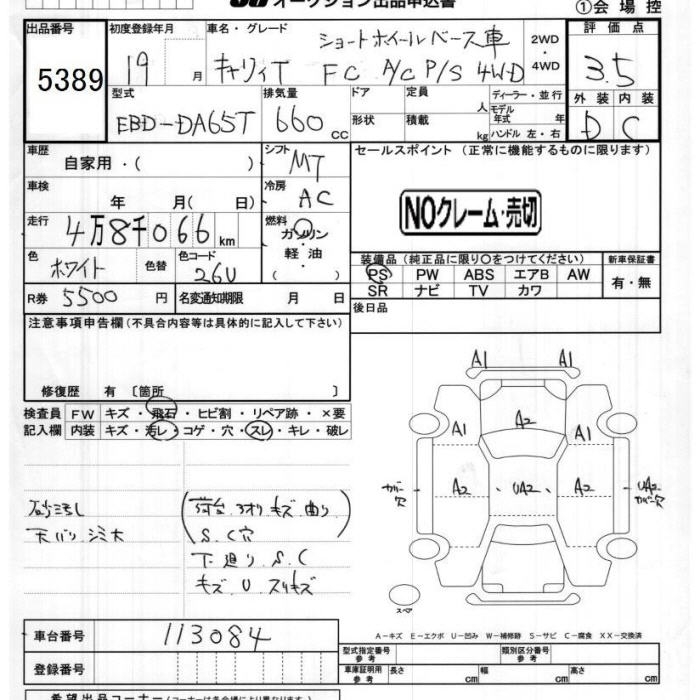 オークション出品申込書
①会場控
出品番号
5389
初度登録年月
19 月
車名・グレード
ショートホイールベース車
キャリィT FC A/C P/S 4WD
2WD
・
4WD
評価点
3.5
型式
EBD-DA65T
排気量
660 CC
ドア
形状
定員
人
積載
kg
ディーラー・並行
モデル
年式 年
ハンドル 左・右
外装 内装
D C
車歴
自家用・( )
シフト
MT
セールスポイント(正常に機能するものに限ります)
車検
年 月( 日)
冷房
AC
NOクレーム・売切
走行
4万8千066 km
燃料
ガソリン
・
軽油
・
( )
色
ホワイト
色替
色コード
26U
装備品(純正品に限り○をつけてください)
PS PW ABS エアB AW
SR ナビ TV カワ
新車保証書
有・無
R券 5500 円
名変通知期限 月 日
後日品
注意事項申告欄(不具合内容等は具体的に記入して下さい)
修復歴 有 〔箇所 〕
検査員
記入欄
FW キズ・飛石・ヒビ割・リペア跡・×要
内装 キズ・汚レ・コゲ・穴・スレ・キレ・破レ
天バリ シミ大
荷台 アオリ キズ 曲り
S.C穴
下廻り S.C
キズ U スリキズ
A1 A1
A2
A1 A1
カバー穴
A2 UA2 A2
UA2
カバー穴
スペア
A-キズ E-エクボ U-凹み W-補修跡 S-サビ C-腐食 XX-交換済
車台番号
113084
登録番号
型式指定番号
参考
類別区分番号
参考
車庫証明用
参考
長さ cm
幅 cm
高さ cm
希望出品コーナー